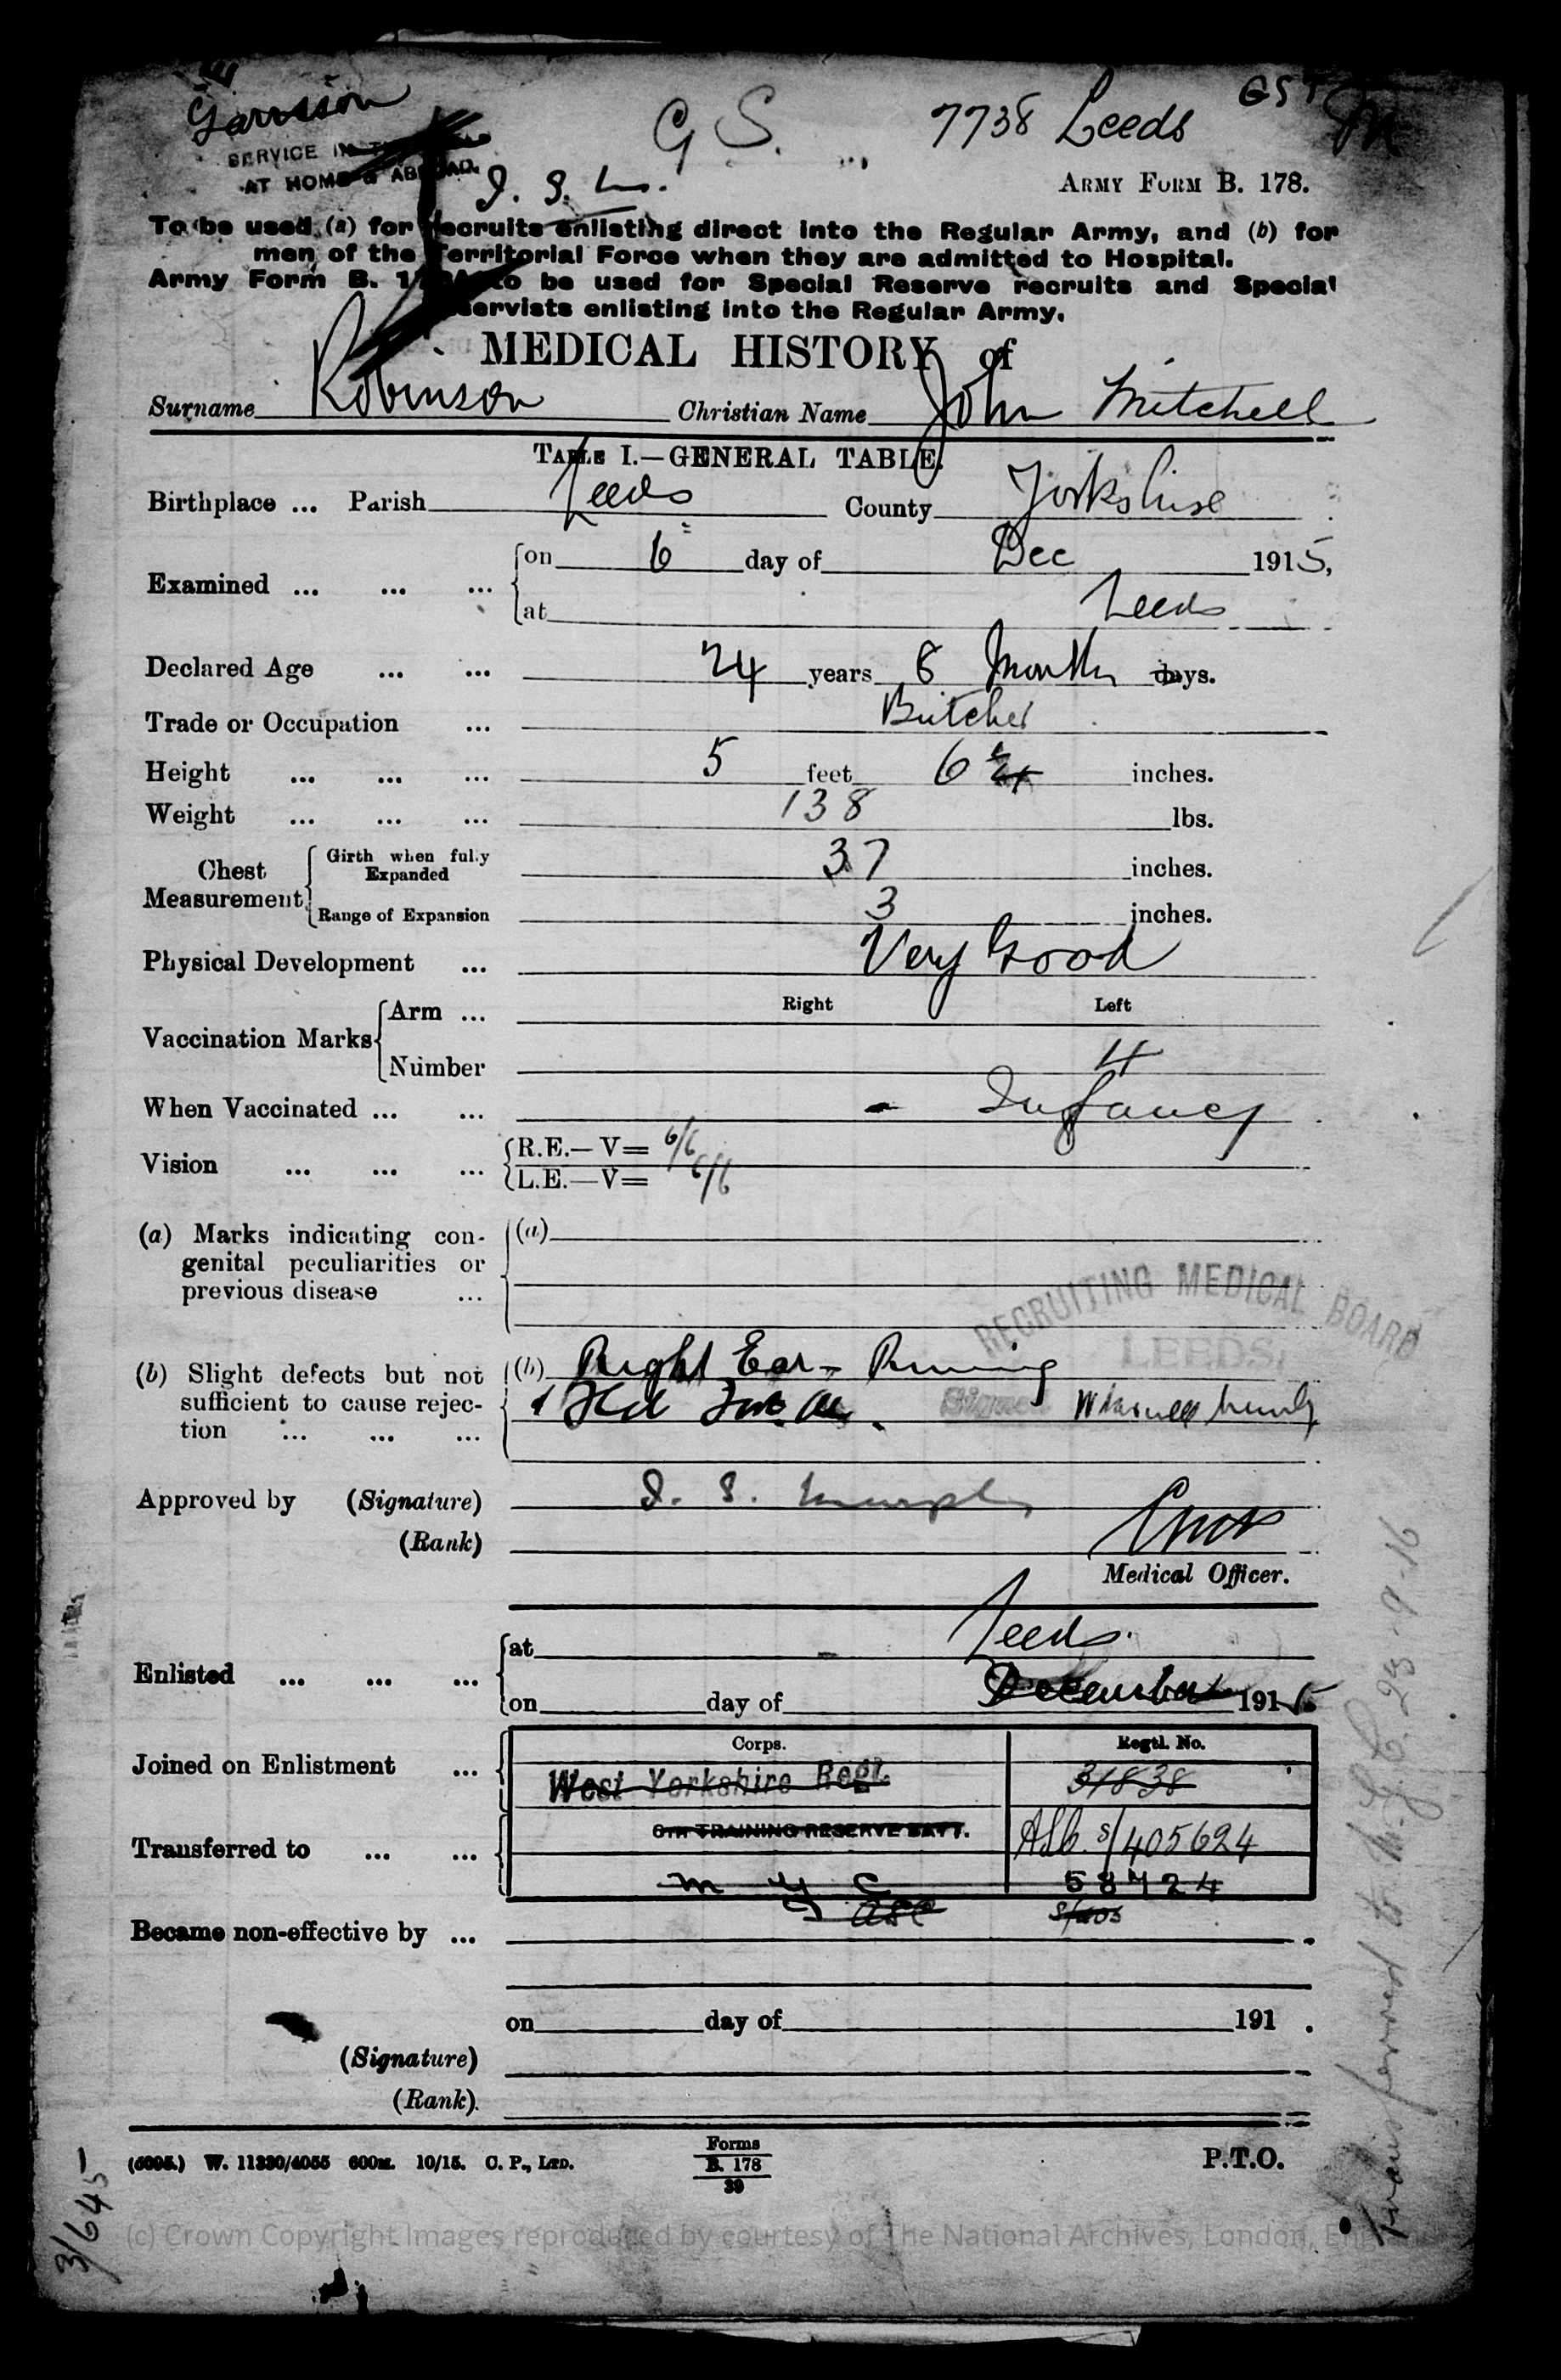 Garrison
G S. 7738 Leeds
SERVICE
AT HOME & ABROAD.
J. S. M.
ARMY FORM B. 178.
To be used (a) for recruits enlisting direct into the Regular Army, and (b) for
men of the Territorial Force when they are admitted to Hospital.
Army Form B. to be used for Special Reserve recruits and Special
servists enlisting into the Regular Army.
MEDICAL HISTORY of
Surname Robinson Christian Name John Mitchell
TABLE I.—GENERAL TABLE.
Birthplace ... Parish Leeds County Yorkshire
Examined ... ... ... on 6 day of Dec 1915,
at Leeds
Declared Age ... ... 24 years 8 Months days.
Trade or Occupation ... Butcher
Height ... ... ... 5 feet 6 inches.
Weight ... ... ... 138 lbs.
Chest Measurement Girth when fully Expanded 37 inches.
Range of Expansion 3 inches.
Physical Development ... Very Good
Right Left
Vaccination Marks Arm ...
Number 4
When Vaccinated ... ... - Infancy
Vision ... ... ... R.E.—V= 6/6
L.E.—V= 6/6
(a) Marks indicating con-
genital peculiarities or
previous disease ...
(a)
RECRUITING MEDICAL BOARD
LEEDS.
(b) Slight defects but not
sufficient to cause rejec-
tion ... ... ...
(b) Right Ear - Running
Approved by (Signature) J. S. Murphy
(Rank)
Medical Officer.
Enlisted ... ... ... at Leeds.
on day of December 1915
Corps. Regtl. No.
Joined on Enlistment ... West Yorkshire Regt. 31838
Transferred to ... ... 6TH TRAINING RESERVE BATT. S/405624
M G C 58724
ASC
Became non-effective by ...
on day of 191 .
(Signature)
(Rank).
(6095.) W. 11330/4055 600M. 10/15. C. P., LTD.
Forms
B. 178
39
P.T.O.
3/645
transferred to M.G.C. 23-9-16
(c) Crown Copyright Images reproduced by courtesy of The National Archives, London, England